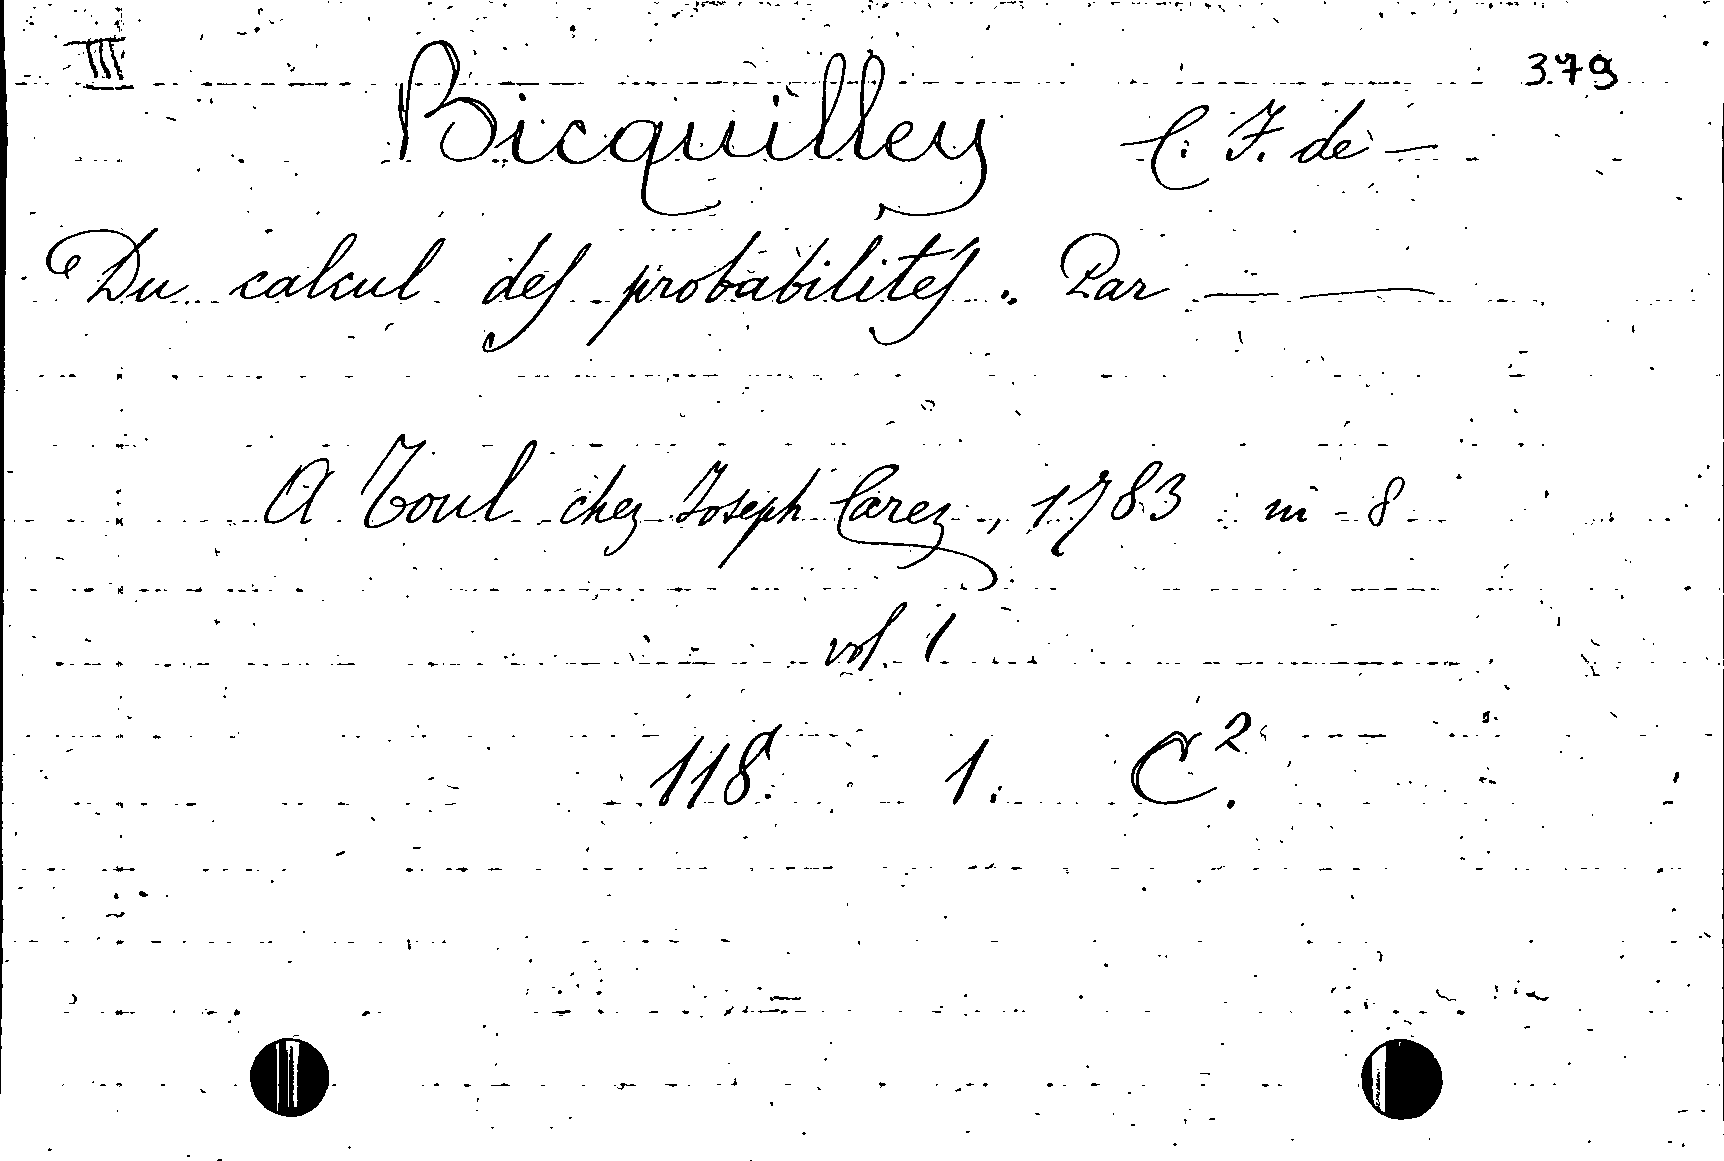 III 379
Bicquilley C. F. de —
Du calcul des probabilités. Par — —
A Toul chez Joseph Carez, 1783 in - 8
vol. 1
118. 1. C².